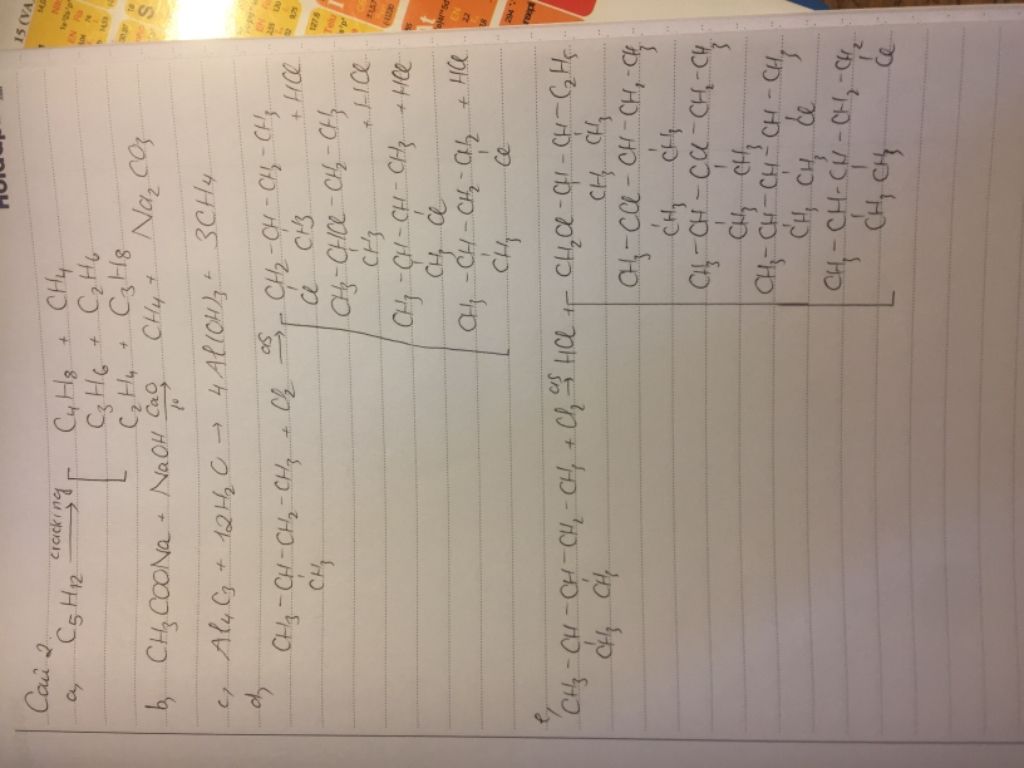 Câu 2.
a, C5H12 cracking → C4H8 + CH4
C3H6 + C2H6
C2H4 + C3H8
b, CH3COONa + NaOH CaO → t° CH4 + Na2CO3
c, Al4C3 + 12H2O → 4Al(OH)3 + 3CH4
d,
CH3-CH-CH2-CH3 + Cl2 as → CH2-CH-CH2-CH3
CH3 Cl CH3 + HCl
CH3-CHCl-CH2-CH3
CH3 + HCl
CH3-CH-CH-CH3 + HCl
CH3 Cl
CH3-CH-CH2-CH2 + HCl
CH3 Cl
e,
CH3-CH-CH-CH2-CH3 + Cl2 as → HCl + CH2Cl-CH-CH-C2H5
CH3 CH3 CH3 CH3
CH3-CCl-CH-CH2-CH3
CH3 CH3
CH3-CH-CCl-CH2-CH3
CH3 CH3
CH3-CH-CH-CH-CH3
CH3 CH3 Cl
CH3-CH-CH-CH2-CH2
CH3 CH3 Cl